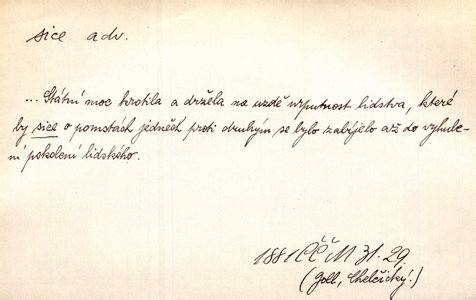 sice adv.
... Státní moc krotila a držela na uzdě vzpurnost lidstva, které
by sice o pomstách jedněch proti druhým se bylo zabíjelo až do vyhube-
ní pokolení lidského.
1881 ČČM 31. 29.
(Goll, Chelčický.)